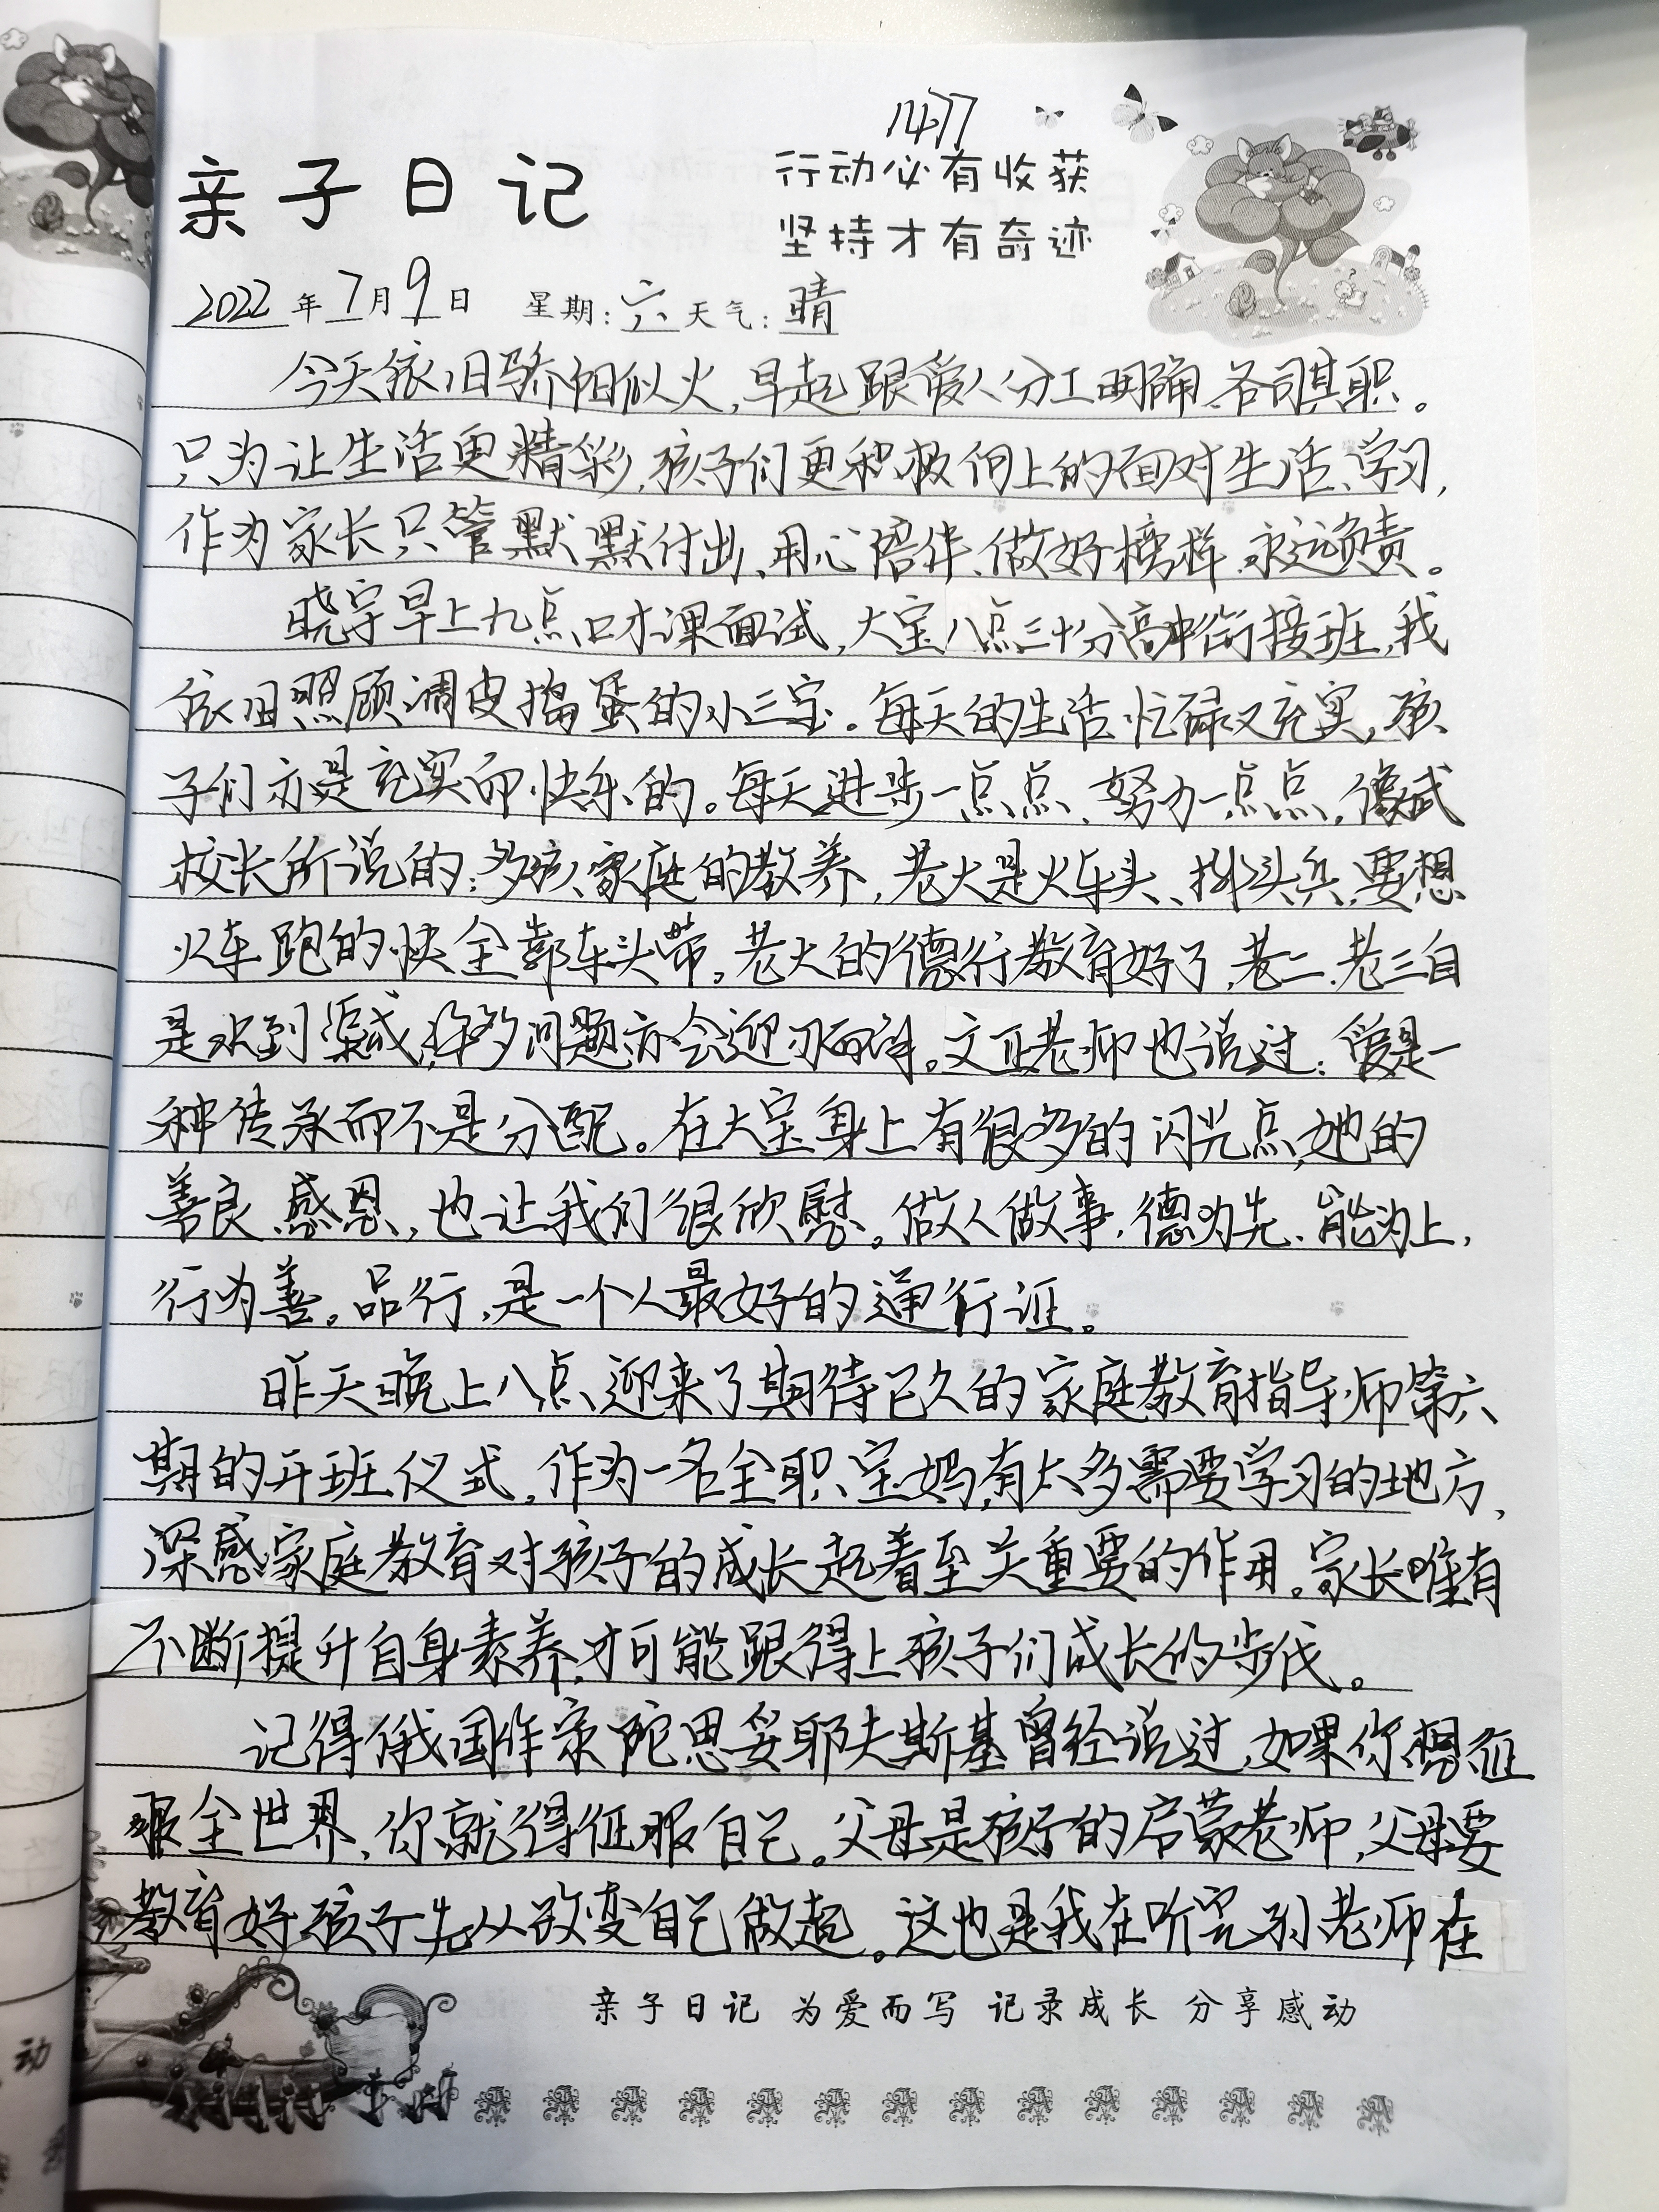 1477
亲子日记
行动必有收获
坚持才有奇迹
2022年7月9日 星期:六 天气:晴
今天依旧骄阳似火,早起跟爱人分工明确、各司其职。
只为让生活更精彩,孩子们更积极向上的面对生活、学习,
作为家长只管默默付出、用心陪伴、做好榜样、永远负责。
晓宇早上九点口才课面试,大宝八点三十分高中衔接班,我
依旧照顾调皮捣蛋的小三宝。每天的生活忙碌又充实,孩
子们亦是充实而快乐的。每天进步一点点、努力一点点,像武
校长所说的:多孩家庭的教养,老大是火车头、排头兵,要想
火车跑的快全靠车头带。老大的德行教育好了,老二、老三自
是水到渠成,许多问题亦会迎刃而解。文卫老师也说过:爱是一
种传承而不是分配。在大宝身上有很多的闪光点,她的
善良、感恩,也让我们很欣慰。做人做事,德为先、能为上,
行为善。品行,是一个人最好的通行证。
昨天晚上八点、迎来了期待已久的家庭教育指导师第六
期的开班仪式,作为一名全职宝妈,有太多需要学习的地方,
深感家庭教育对孩子的成长起着至关重要的作用。家长唯有
不断提升自身素养,才可能跟得上孩子们成长的步伐。
记得俄国作家陀思妥耶夫斯基曾经说过,如果你想征
服全世界,你就得征服自己。父母是孩子的启蒙老师,父母要
教育好孩子先从改变自己做起。这也是我在听完孙老师在
亲子日记 为爱而写 记录成长 分享感动
动